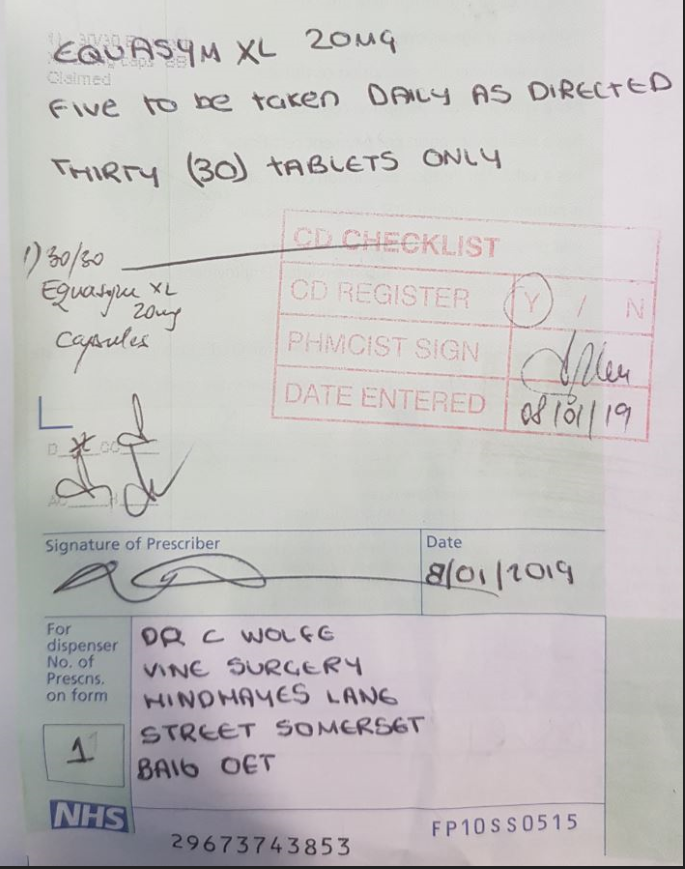 EQUASYM XL 20MG
Claimed
FIVE to be taken DAILY AS DIRECTED
THIRTY (30) tABLETS ONLY
1) 30/30
Equasym XL
20mg
Capsules
CD CHECKLIST
CD REGISTER Y / N
PHMCIST SIGN
DATE ENTERED 08/01/19
Signature of Prescriber
Date
8/01/2019
For
dispenser
No. of
Prescns.
on form
1
DR C WOLFE
VINE SURGERY
HINDHAYES LANE
STREET SOMERSET
BA16 0ET
NHS
29673743853
FP10SS0515